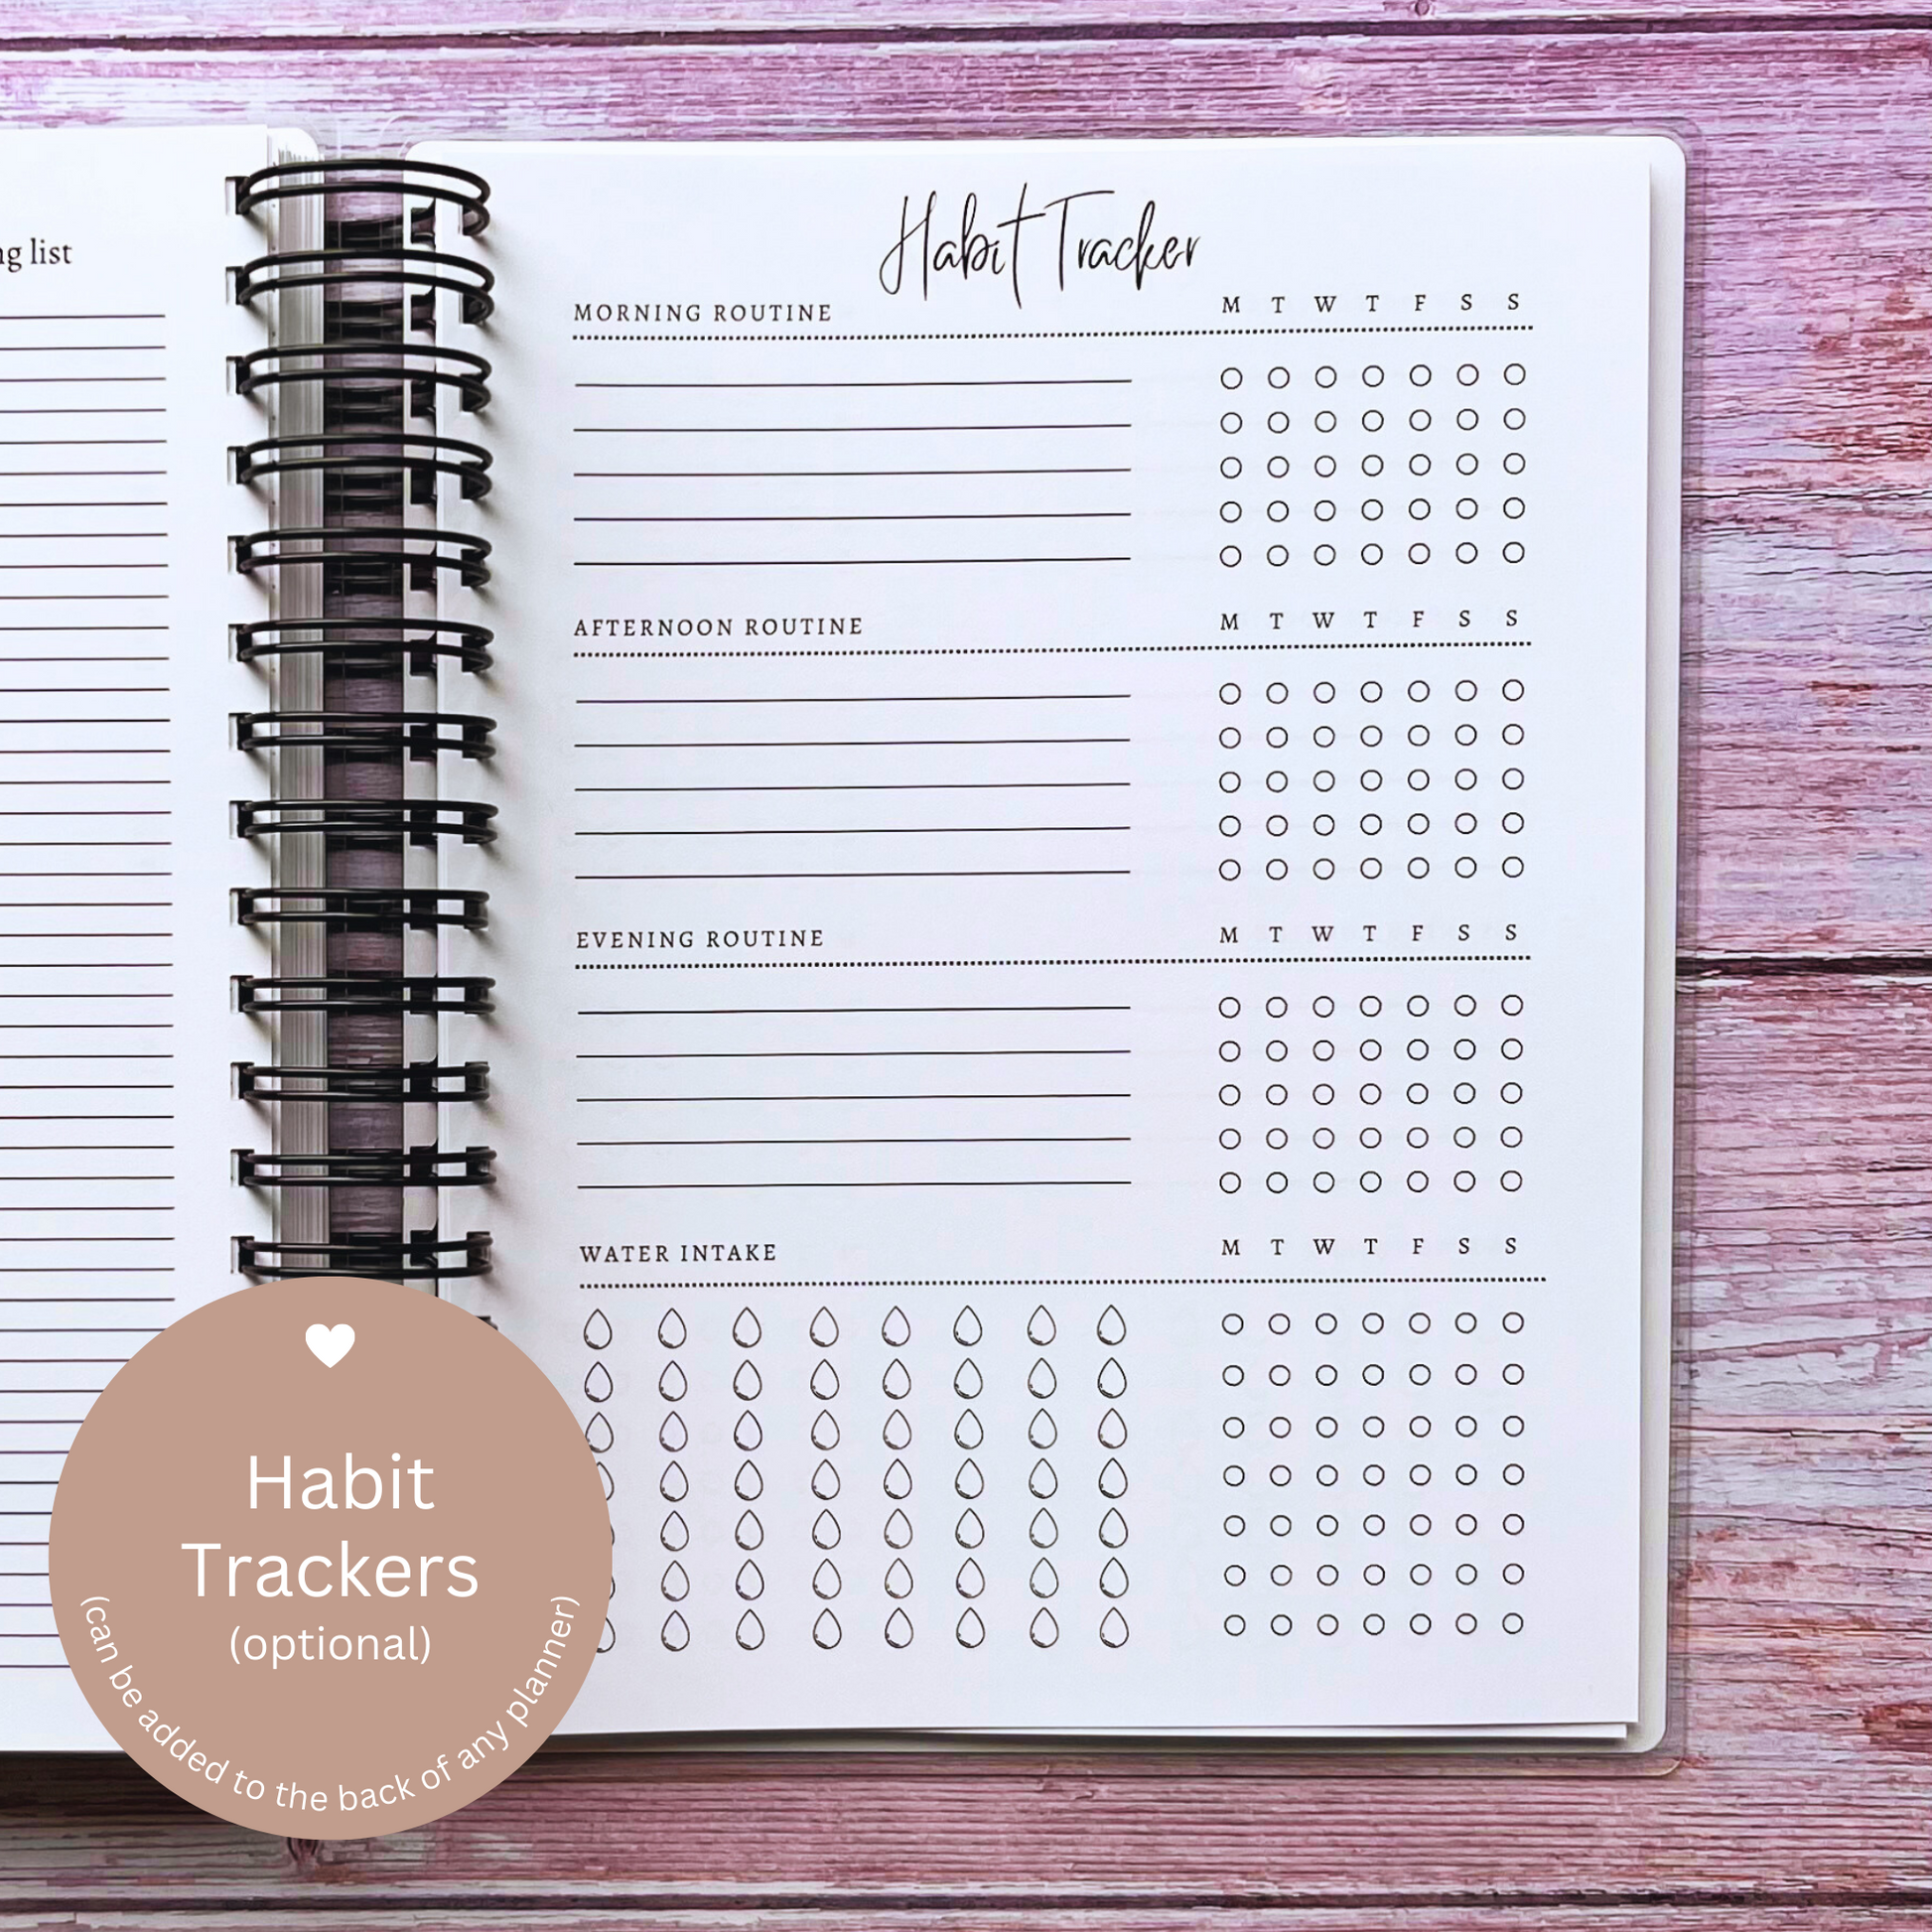 list
Habit Tracker
MORNING ROUTINE M T W T F S S
AFTERNOON ROUTINE M T W T F S S
EVENING ROUTINE M T W T F S S
WATER INTAKE M T W T F S S
Habit
Trackers
(optional)
(can be added to the back of any planner)